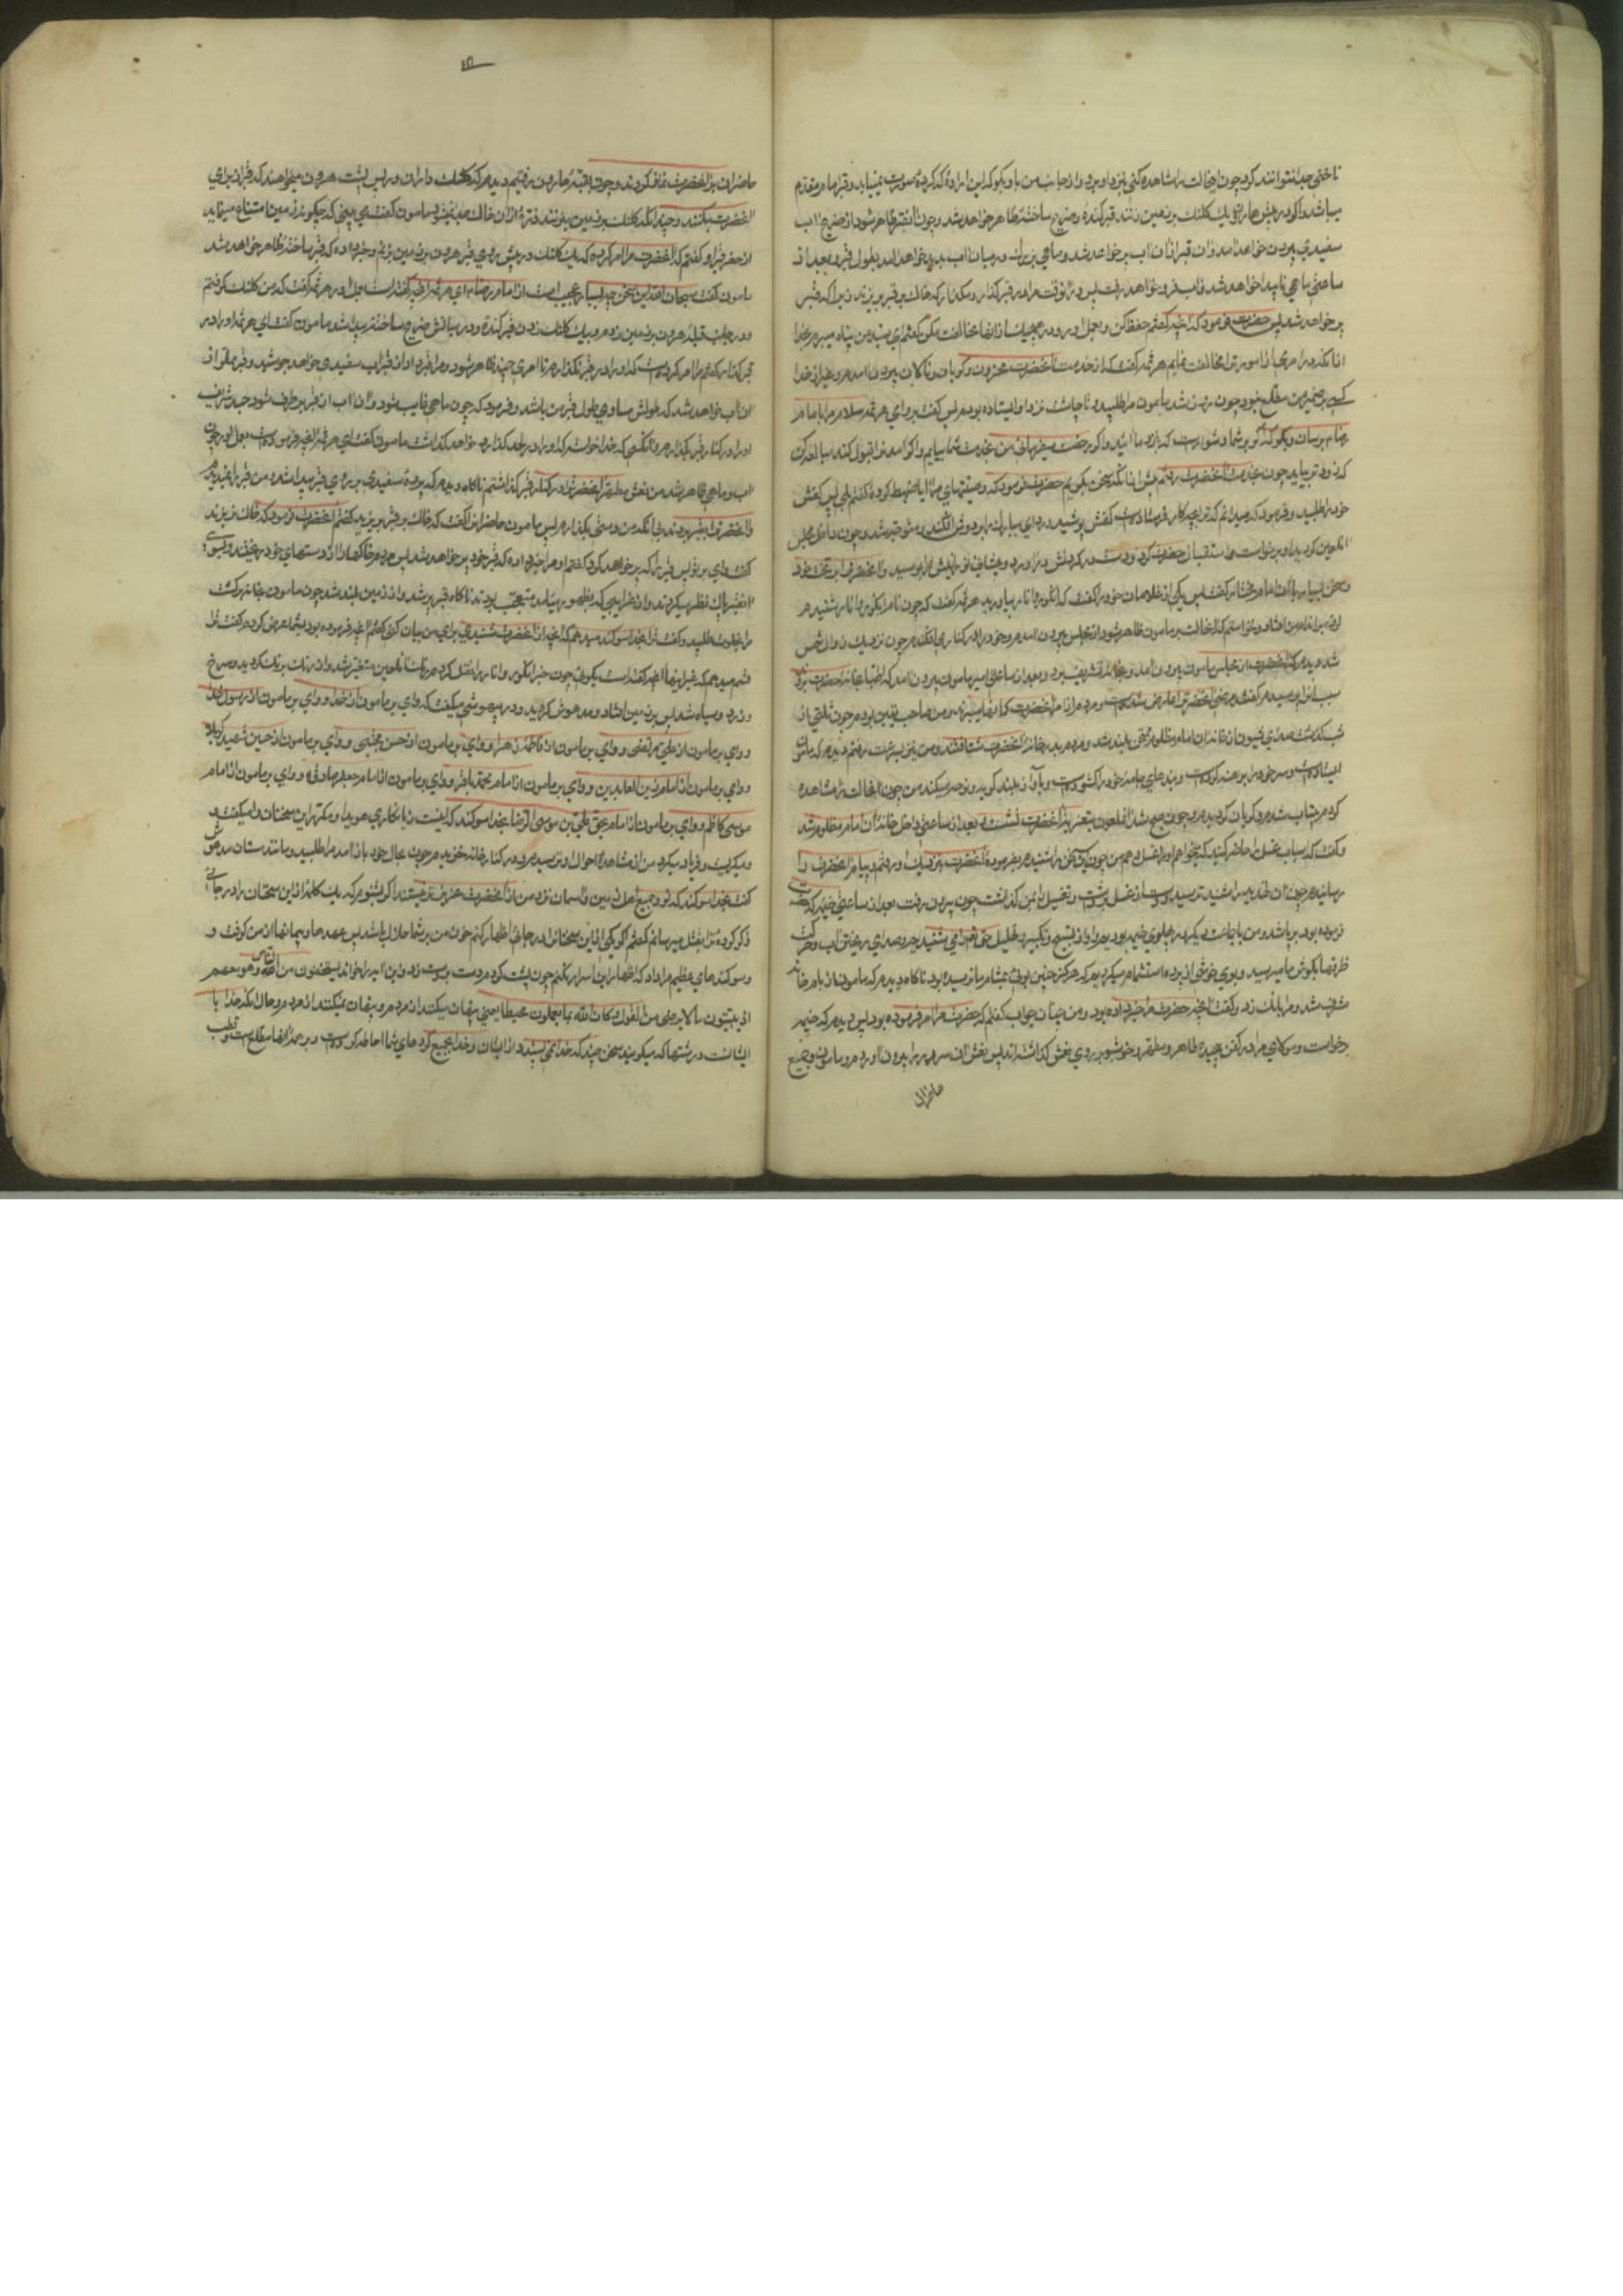 ناخنی جدا نتوانند کرد چون این حالت را مشاهده کنی بنزد او برو و از جانب من باو بگو که این اراده که کرده صورت نمییابد و قبر امام مقدم
میباشد و اگر در پیش هارون یک کلنک بر زمین زنند قبر کنده و ضریح ساخته ظاهر خواهد شد و چون قبر ظاهر شود از ضریح اب
سفیدی بیرون خواهد امد و ان قبر از ان اب پر خواهد شد و ماهی بزرک در میان اب پدید خواهد امد بطول قبر و بعد از
ساعتی ماهی ناپیدا خواهد شد و اب فرو خواهد رفت پس در انوقت مرا در قبر گذار و مگذار که خاک در قبر بریزند زیرا که قبر
پر خواهد شد پس حضرت فرمود که انچه گفتم حفظ کن و بعمل اور و در هیچیک از انها مخالفت مکن گفتم ای سید من پناه میبرم بخدا
از انکه در امری از امور ترا مخالفت نمایم هرثمه گفت که از خدمت انحضرت محزون و گریان و نالان بیرون امدم و غیر از خدا
کسی بر ضمیر من مطلع نبود چون روز شد مامون مرا طلبید و تا چاشت نزد او ایستاده بودم پس گفت برو ای هرثمه سلام مرا بامام
رضا برسان و بگو که اگر بر شما دشوار نیست که نزد ما ائید و اگر رخصت میفرمائی من بخدمت شما بیایم و اگر امدن را قبول کند مبالغه کن
که زودتر بیاید چون بخدمت انحضرت رفتم پیش از انکه سخن بگویم حضرت فرمود که وصیتهای مرا ایا ضبط کرده گفتم بلی پس کفش
خود را طلبید و فرمود که میدانم که ترا بچه کار فرستاده است کفش پوشید و ردای مبارک بر دوش افکند و متوجه شد و چون داخل مجلس
ان لعین گردید او برخاست و استقبال حضرت کرد و دست در گردنش در اورد و پیشانی نورانیش را بوسید و انحضرت را بر تخت خود
و سخن بسیار با ان امام مختار گفت پس یکی از غلامان خود را گفت که انگور و انار بیاورید هرثمه گفت که چون نام انگور و انار شنیدم
لرزه بر اندام من افتاد و نخواستم که این حالت بر مامون ظاهر شود از مجلس بیرون امدم و خود را در کناری افکندم چون نزدیک زوال شمس
شد دیدم که حضرت از مجلس مامون بیرون امد و بخانه تشریف برد و بعد از ساعتی امر مامون بیرون امد که اطبا بخانه حضرت روند
سبب انرا پرسیدم گفتند مرضی انحضرت را عارض شده است و مردم در امر انحضرت گمانها میبردند و من صاحب یقین بودم چون ثلثی از
شب گذشت صدای شیون از خانه ان امام مظلوم بلند شد و مردم بدر خانه انحضرت شتافتند و من نیز بسرعت رفتم دیدم که مامون
ایستاده است و سر خود را برهنه کرده است و بندهای جامه خود را گشوده است و باواز بلند گریه و نوحه میکند من چون این حالت را مشاهده
کردم بیتاب شدم و گریان گردیدم و چون صبح شد ان ملعون بتعزیه انحضرت نشست و بعد از ساعتی داخل خانه ان امام مظلوم شد
و گفت که اسباب غسل را حاضر کنید که میخواهم او را غسل دهم من چون این سخن را شنیدم بفرموده انحضرت نزدیک او رفتم و پیام انحضرت را
رسانیدم چون ان تهدید را شنید ترسید و دست از غسل برداشت و تغسیل را بمن گذاشت چون بیرون رفت بعد از ساعتی خیمه که حضرت
فرموده بود برپا شد و من با جماعت دیگر در بیرون خیمه بودیم و اواز تسبیح و تکبیر و تهلیل حق تعالی میشنیدیم و صدای ریختن اب و حرکت
ظرفها بگوش ما میرسید و بوی خوشی از پرده استشمام میکردیم که هرگز چنین بوئی بمشام ما نرسیده بود ناگاه دیدم که مامون از بام خانه
مشرف شد و مرا بانک زد و گفت انچه حضرت مرا خبر داده بود و من چنان جواب گفتم که حضرت مرا امر فرموده بود پس دیدم که خیمه
برخواست و مولای مرا در کفن پیچیده طاهر و مطهر و خوشبو بر روی نعش گذاشته اند پس نعش ان سرور را بیرون اوردم و مامون و جمیع
حاضران
حاضران بر انحضرت نماز کردند و چون بقبه هارون رفتیم دیدم که کلنک داران در پس پشت هرون میخواهند که قبر از برای
انحضرت بکنند و چندانکه کلنک بر زمین میزنند ذره از ان خاک جدا نمیشود مامون گفت می بینی که چگونه زمین امتناع مینماید
از حفر قبر او گفتم که انحضرت مرا امر کرده که یک کلنک در پیش روی قبر هرون بر زمین بزنم و خبر داده که قبر ساخته ظاهر خواهد شد
مامون گفت سبحان الله این سخن چه بسیار عجیب است از امام رضا ای هرثمه انچه گفته است بعمل اور هرثمه گفت که من کلنک گرفتم
و در جانب قبله هرون بر زمین زدم و بیک کلنک زدن قبر کنده و در میانش ضریح ساخته پیدا شد مامون گفت ای هرثمه او را در
قبر گذار گفتم مرا امر کرده است که او را در قبر نگذارم تا امری چند ظاهر شود و مرا خبر داد که از قبر اب سفیدی خواهد جوشید و قبر مملو از
ان اب خواهد شد و ماهی ظاهر خواهد شد که طولش مساوی طول قبر من باشد و فرمود که چون ماهی غایب شود و ان اب از قبر برطرف شود جسد شریف
او را در کنار قبر بگذارم و انکسی که خدا خواسته که او را در لحد گذارد خواهد گذاشت مامون گفت ای هرثمه انچه فرموده است بعمل اور چون
اب و ماهی ظاهر شد من نعش مطهر انحضرت را در کنار قبر گذاشتم ناگاه دیدم که پرده سفیدی بر روی قبر پیدا شد و من قبر را نمیدیدم
و انحضرت را بقبر بردند بی انکه من دستی بگذارم پس مامون حاضران را گفت که خاک بر قبر بریزید گفتم انحضرت فرمود که خاک نریزند
گفت وای بر تو پس قبر را که پر خواهد کرد گفتم او مرا خبر داده که قبر خود پر خواهد شد پس مردم خاکها را از دستهای خود ریختند و بسوی
ان قبر پاک نظر میکردند و از غرایبی که بظهور میامد متعجب بودند ناگاه قبر پر شد و از زمین بلند شد چون مامون بخانه برگشت
مرا بخلوت طلبید و گفت ترا بخدا سوگند میدهم که انچه از انحضرت شنیدی برای من بیان کنی گفتم انچه فرموده بود بشما عرض کردم گفت ترا
قسم میدهم که غیر اینها انچه گفته است بگوی چون خبر انگور و انار را نقل کردم رنک ان لعین متغیر شد و از رنک برنک گردید و سرخ
و زرد و سیاه شد پس بر زمین افتاد و مدهوش گردید و در بیهوشی میگفت که وای بر مامون از خدا و وای بر مامون از رسول خدا
و وای بر مامون از علی مرتضی و وای بر مامون از فاطمه زهرا و وای بر مامون از حسن مجتبی و وای بر مامون از حسین شهید کربلا
و وای بر مامون از امام زین العابدین و وای بر مامون از امام محمد باقر و وای بر مامون از امام جعفر صادق و وای بر مامون از امام
موسی کاظم و وای بر مامون از امام بحق علی بن موسی الرضا بخدا سوگند که اینست زیانکاری هویدا و مکرر این سخنان را میگفت و
و میگریست و فریاد میکرد من از مشاهده احوال او ترسیدم و در کنار خانه خزیدم چون بحال خود باز امد مرا طلبید و مانند مستان مدهوش
گفت بخدا سوگند که تو و جمیع اهل زمین و اسمان نزد من از انحضرت عزیزتر نیستند اگر بشنوم که یک کلمه از این سخنان را در جائی
ذکر کرده ترا بقتل میرسانم گفتم اگر یکی از این سخنان را در جائی اظهار کنم خون من بر شما حلال باشد پس عهدها و پیمانها از من گرفت و
و سوگندهای عظیم مرا داد که اظهار این اسرار نکنم چون پشت کردم دست بر دست زد و این ایه را خواند یستخفون من الناس ولا یستخفون من الله و هو معهم
اذ یبیتون ما لا یرضی من القول و کان الله بما یعملون محیطا یعنی پنهان میکنند از مردم و پنهان نمیکنند از خدا و حال انکه خدا با
ایشانست در شبها که میگویند سخن چند که خدا نمی پسندد از ایشان و خدا بجمیع کردهای شما احاطه کرده است و بر همه انها مطلع است و قطب